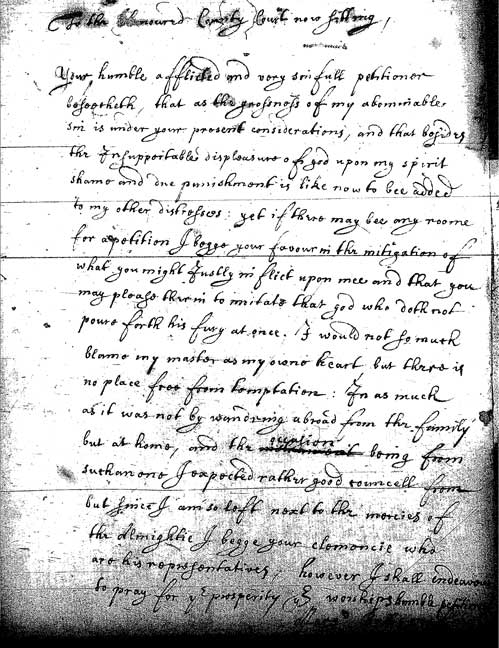 To the Honoured County Court now sitting,
Your humble afflicted and very sinfull petitioner
beseecheth, that as the grossness of my abominable
sin is under your present considerations, and that besides
the Insupportable displeasure of god upon my spirit
shame and due punishment is like now to bee added
to my other distresses: yet if there may bee any roome
for a petition I begge your favour in the mitigation of
what you might Justly inflict upon mee and that you
may please therein to imitate that god who doth not
poure forth his fury at once. I would not so much
blame my master as my owne heart but there is
no place free from temptation: In as much
as it was not by wandring abroad from the family
but at home, and the occasion being from
such an one I expected rather good councell from
but since I am so left next to the mercies of
the Almightie I begge your clemencie who
are his representatives, however I shall endeavour
to pray for yr prosperity yr worships humble petitioner